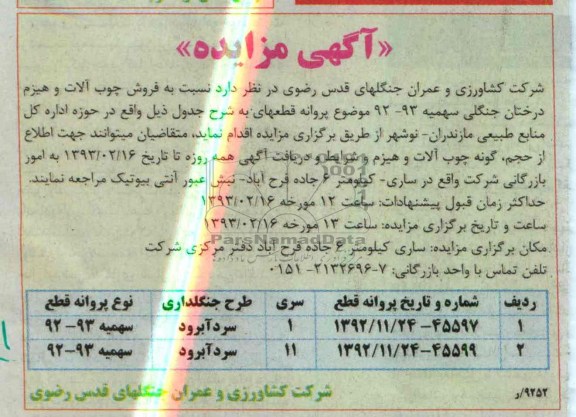 «آگهی مزایده»
شرکت کشاورزی و عمران جنگلهای قدس رضوی در نظر دارد نسبت به فروش چوب آلات و هیزم
درختان جنگلی سهمیه ۹۳- ۹۲ موضوع پروانه قطعهای به شرح جدول ذیل واقع در حوزه اداره کل
منابع طبیعی مازندران- نوشهر از طریق برگزاری مزایده اقدام نماید، متقاضیان میتوانند جهت اطلاع
از حجم، گونه چوب آلات و هیزم و شرایط و دریافت آگهی همه روزه تا تاریخ ۱۳۹۳/۰۲/۱۶ به امور
بازرگانی شرکت واقع در ساری- کیلومتر ۶ جاده فرح آباد- نبش عبور آنتی بیوتیک مراجعه نمایند.
حداکثر زمان قبول پیشنهادات: ساعت ۱۲ مورخه ۱۳۹۳/۰۲/۱۶
ساعت و تاریخ برگزاری مزایده: ساعت ۱۳ مورخه ۱۳۹۳/۰۲/۱۶
مکان برگزاری مزایده: ساری کیلومتر ۶ جاده فرح آباد دفتر مرکزی شرکت
تلفن تماس با واحد بازرگانی: ۷-۲۱۳۲۶۹۶- ۰۱۵۱
ردیف شماره و تاریخ پروانه قطع سری طرح جنگلداری نوع پروانه قطع
۱ ۴۵۵۹۷- ۱۳۹۲/۱۱/۲۴ ۱ سردآبرود سهمیه ۹۳- ۹۲
۲ ۴۵۵۹۹- ۱۳۹۲/۱۱/۲۴ ۱۱ سردآبرود سهمیه ۹۳-۹۲
۹۲۵۲/ر شرکت کشاورزی و عمران جنگلهای قدس رضوی
ParsNamadData